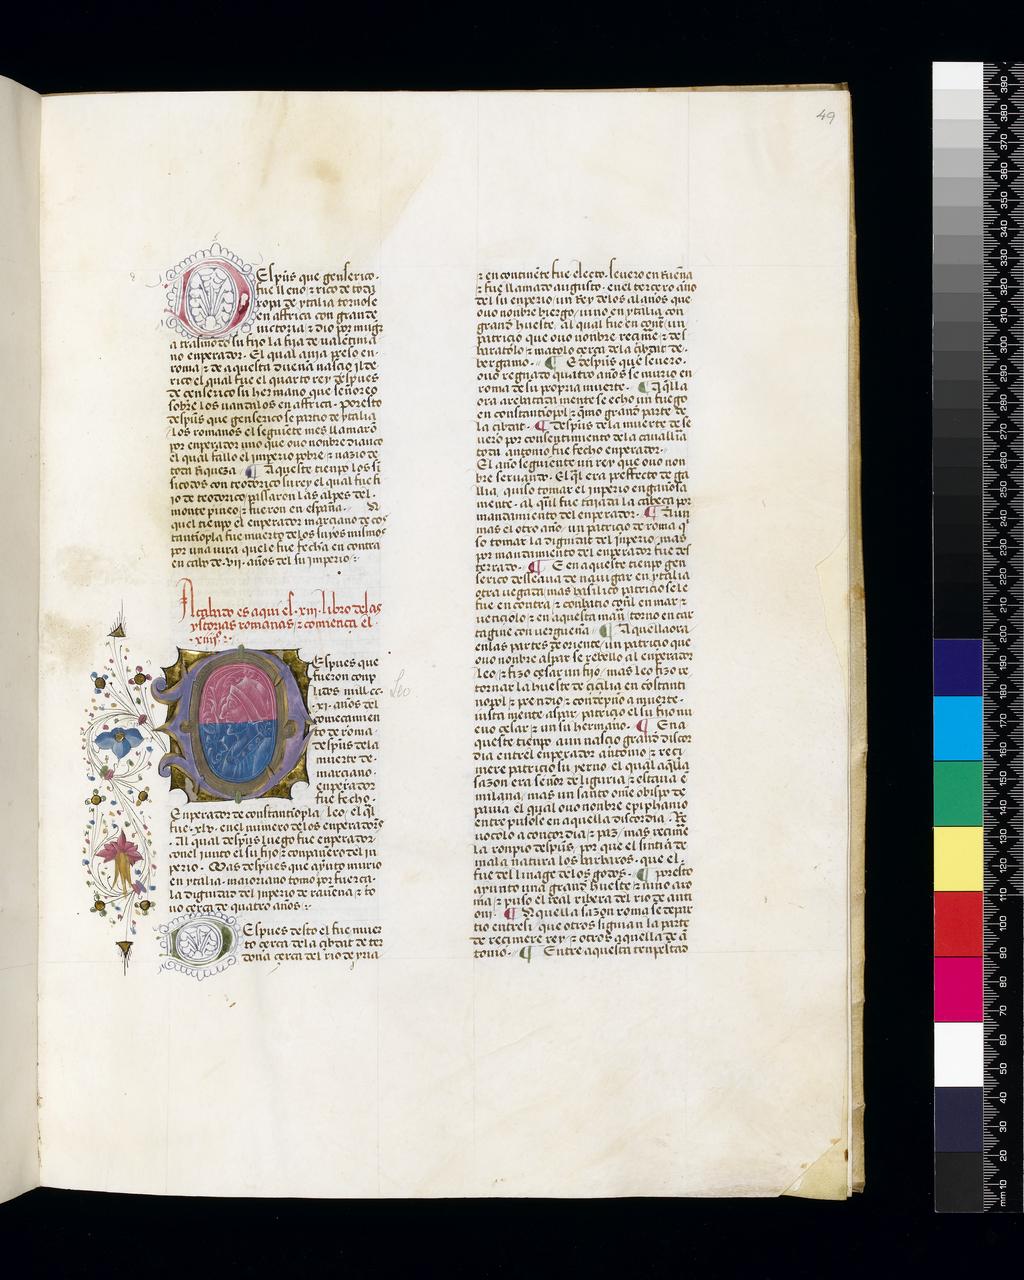 49
Espues que genserico·
fue lleno ⁊ rico de todo
ropa de ytalia tornose
en affrica con grande
victoria ⁊ dio por muger
a trasimo su fijo la fija de valentinia
no enperador· El qual auia preso en·
roma ⁊ de aquesta duena nasçio ilde
rico el qual fue el quarto rey despues
de censerico su hermano que señoreo
sobre los uandalos en affrica· por esto
despues que genserico se partio de ytalia
los romanos el seguiente mes llamarõ
por enperador uno que ouo nonbre
el qual fallo el imperio pobre ⁊ uazio de
toda riqueza ¶ Aqueste tienpo los si
con teodorico su rey el qual fue fi
io de teodorico passaron las alpes del·
monte pineo ⁊ fueron en españa·
quel tienpo el enperador marciano de cos
tantinopla fue muerto de los suyos mismos
por una iura que le fue fecha en contra
en cabo de·vii· años del su imperio·:
Acabado es aqui el·xiii·libro delas
ystorias romanas ⁊ comiença el
·xiiiiº·
Espues que
fueron conp
lidos mill·cc·
·xi·años del
començamien
to de roma
despues dela
muerte de·
marciano·
enperador
fue fecho·
Enperador de constantinopla·leo·el q̃l
fue·xlv·enel numero delos enperadores
·Al qual despues luego fue enperador·
conel junto el su fijo ⁊ conpañero del in
perio· Mas despues que
en ytalia·maioriano tomo por fuerça·
la dignidat del inperio de rauena ⁊ to
uo cerca de quatro años·:
Espues desto el fue muer
to cerca dela çibdat de ter
dona çerca del rio de yria
Leo
⁊ en continẽte fue electo·seuero en rauẽna
⁊ fue llamado augusto·enel terçero año
del su enperio/un rey delos alanos que
ouo nonbre biergo/uino en ytalia con
grand hueste·al qual fue en contra/un
patricio que ouo nonbre recimer ⁊ des
baratolo ⁊ matolo cerca dela çibdat de·
bergamo· ¶ E despues que seuero·
ouo regnado quatro años se murio en
roma de su propria muerte· ¶ Aq̃lla
ora se echo un fuego
en constantinopla ⁊ q̃mo grand parte de
la çibdat· ¶ despues dela muerte de se
uero por consentimento dela cauallaria
toda antonio fue fecho enperador·
El año seguiente un rey que ouo non
bre seruando·El q̃l era preffecto de ga
llia·quiso tomar el inperio engañosa
mente·al q̃l fue tajada la cabeça por
mandamiento del enperador· ¶ Aun
mas el otro año/un patricio de roma q̃
so tomar la dignidat del inperio/mas
por mandamiento del enperador fue des
terrado· ¶ E en aqueste tienpo gen
serico desseaua de nauigar en ytalia
otra uegada mas basilico patricio se le
fue en contra ⁊ conbatio conel en mar ⁊
uençiolo ⁊ en aquesta manera torno en car
tagine con uerguença· ¶ Aquella ora
enlas partes de oriente/un patricio que
ouo nonbre aspar se rebello al enperador
leo/⁊ fizo çesar un fijo/mas leo fizo re
tornar la hueste de çiçilia en costanti
nopla ⁊ prendio ⁊ a muerte·
iusta mente aspar patricio el su fijo nu
euo çesar ⁊ un su hermano· ¶ En a
queste tienpo aun nasçio grand discor
dia entrel enperador antonio ⁊ reci
mere patricio su yerno·el qual aq̃lla
sazon era señor de liguria ⁊ estaua ẽ
milana/mas un santo omẽ obispo de
pauia el qual ouo nonbre epiphanio
entre pusole en aquella discordia·Re
uocolo a concordia ⁊ paz/mas recimẽ
la ronpio despues·por que el sintia de
mala natura los barbaros·que el·
fue del linage delos godos· ¶ por esto
ayunto una grand hueste ⁊ uino a ro
ma ⁊ puso el real ribera del rio de anti
oni· ¶ Aquella sazon roma se depar
tio entre si/que otros siguian la parte
de recimere rey ⁊ otros aquella de ã
tonio· ¶ Entre aquesta tenpestad